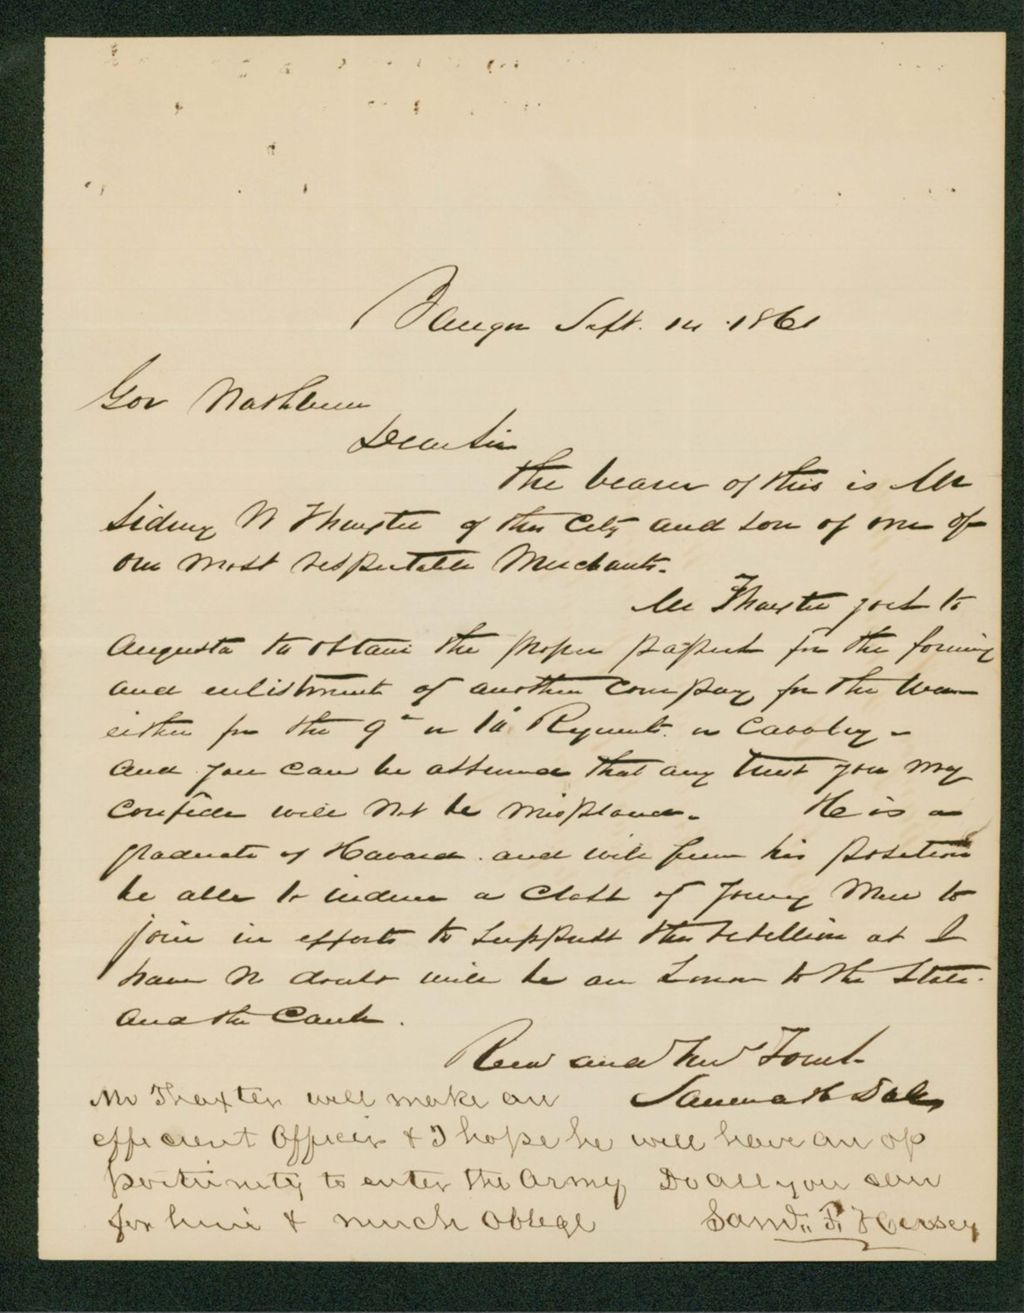 Bangor Sept. 14 1861
Gov Washburn
Dear Sir
The bearer of this is Mr
Sidney W Thaxter of this City and son of one of
our most respectable Merchants.
Mr Thaxter goes to
Augusta to obtain the proper papers for the forming
and enlistment of another company for the War
either for the 9th or 10 Regiments or Cavalry -
and you can be assured that any trust you may
confide will not be misplaced. He is a
graduate of Havard. and will from his position
be able to induce a class of young Men to
join in efforts to suppress this rebellion as I
have no doubt will be an honor to the State.
and the Cause.
and Yours
Samuel H Dale
Mr Thaxter will make an
efficient Officer & I hope he will have an op
portunity to enter the Army Do all you can
for him & much oblege Saml. F. Hersey